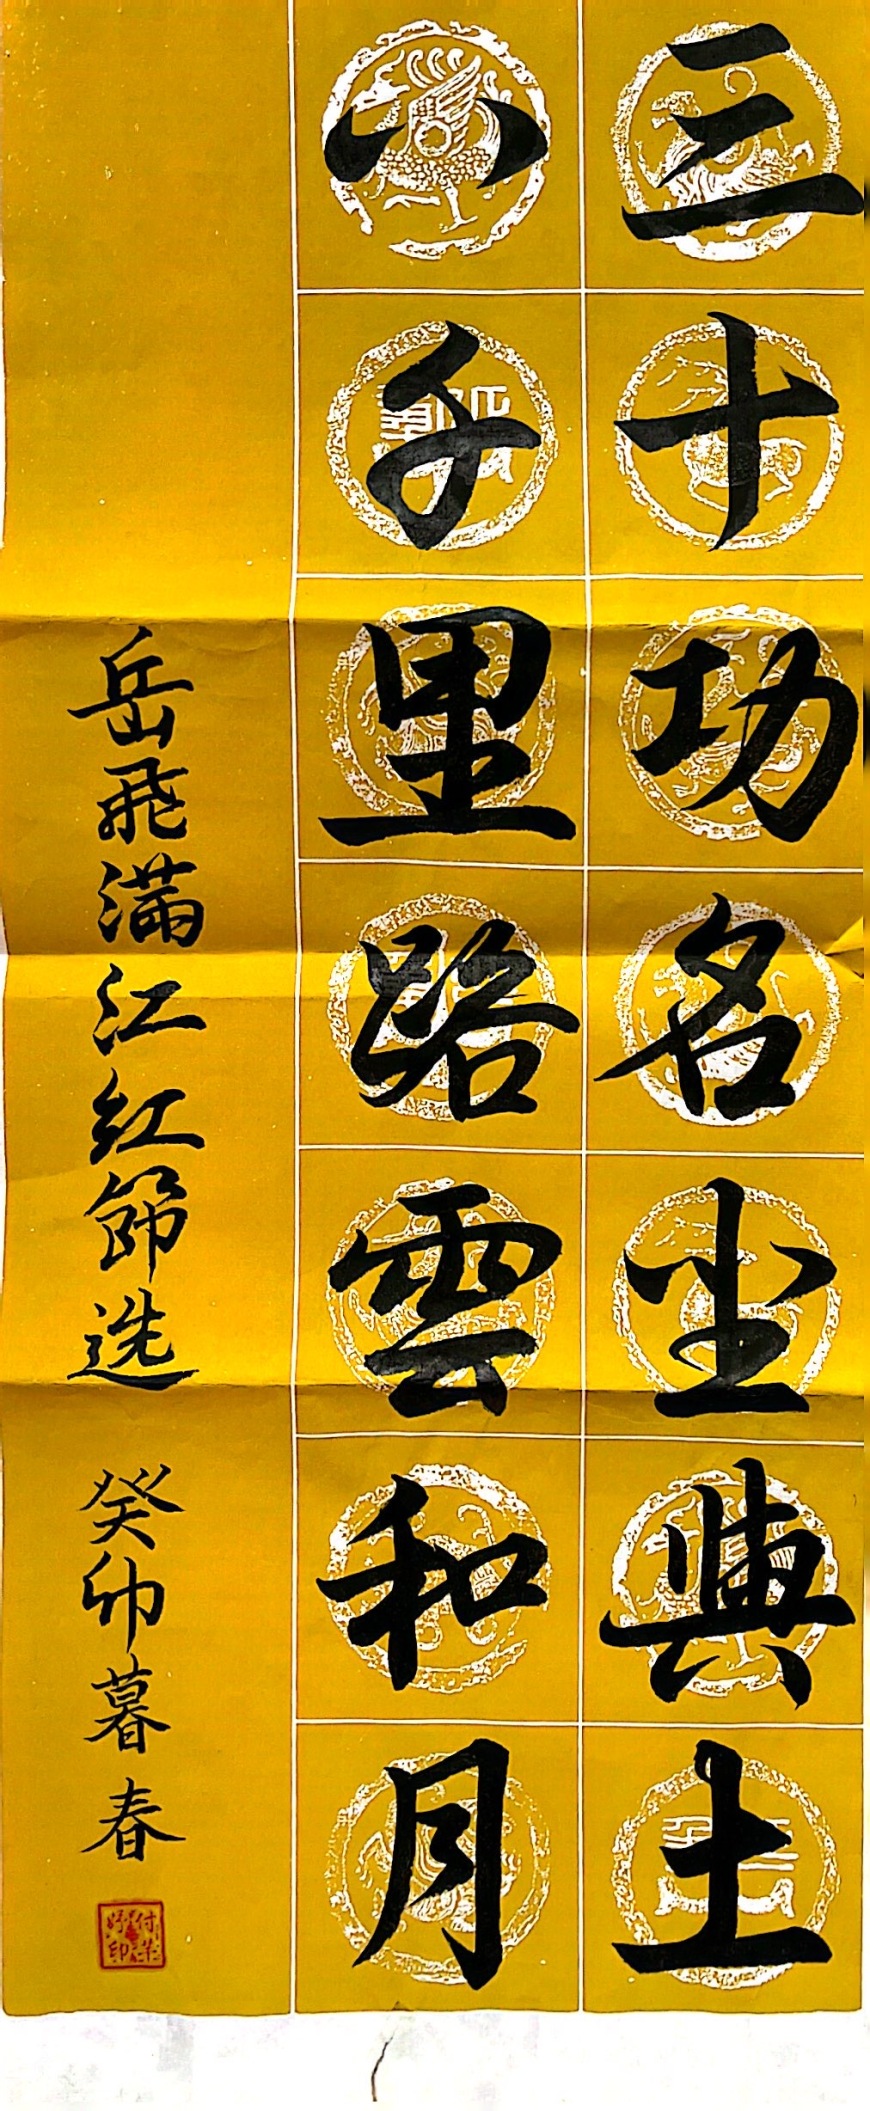 三十功名尘與土
八千里路雲和月
岳飛满江红節选
癸卯暮春